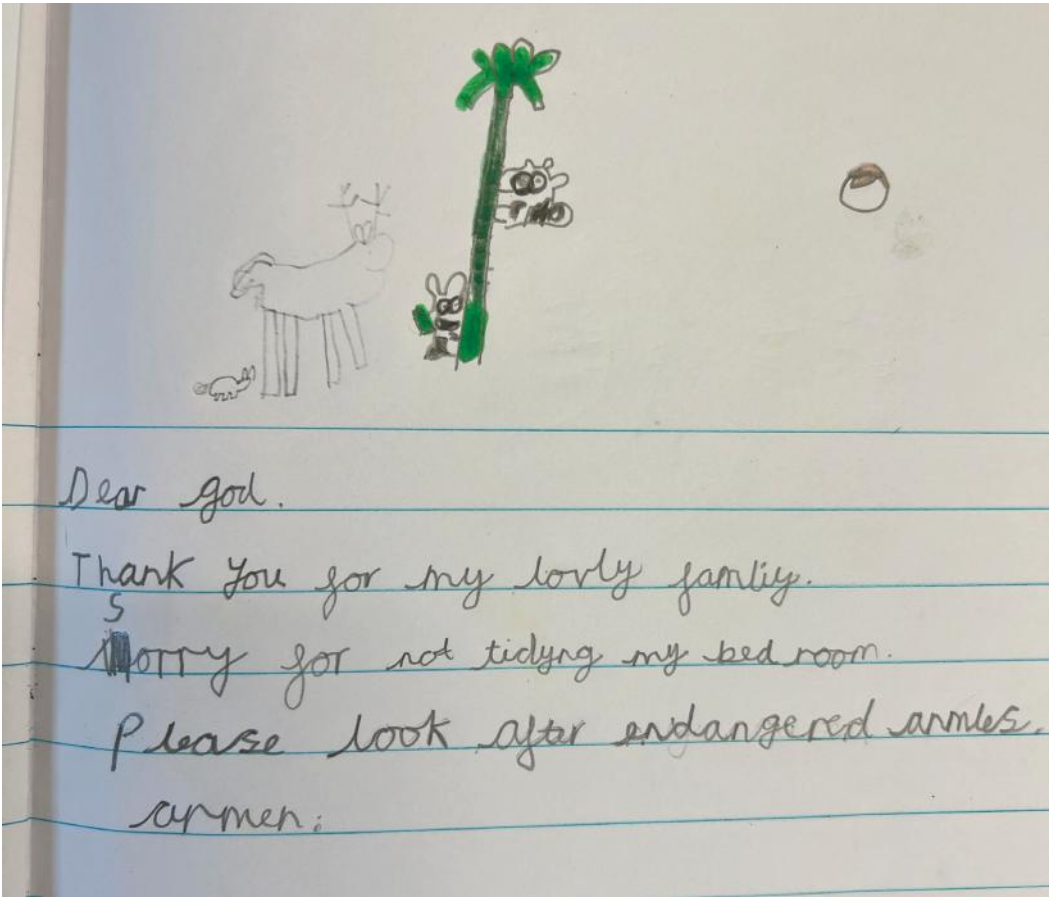 Dear god.
Thank you for my lovly famliy.
Sorry for not tidyng my bed room.
Please look after endangered anmles.
armen.